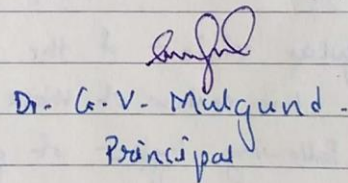 Dr. G. V. Malgund.
Principal